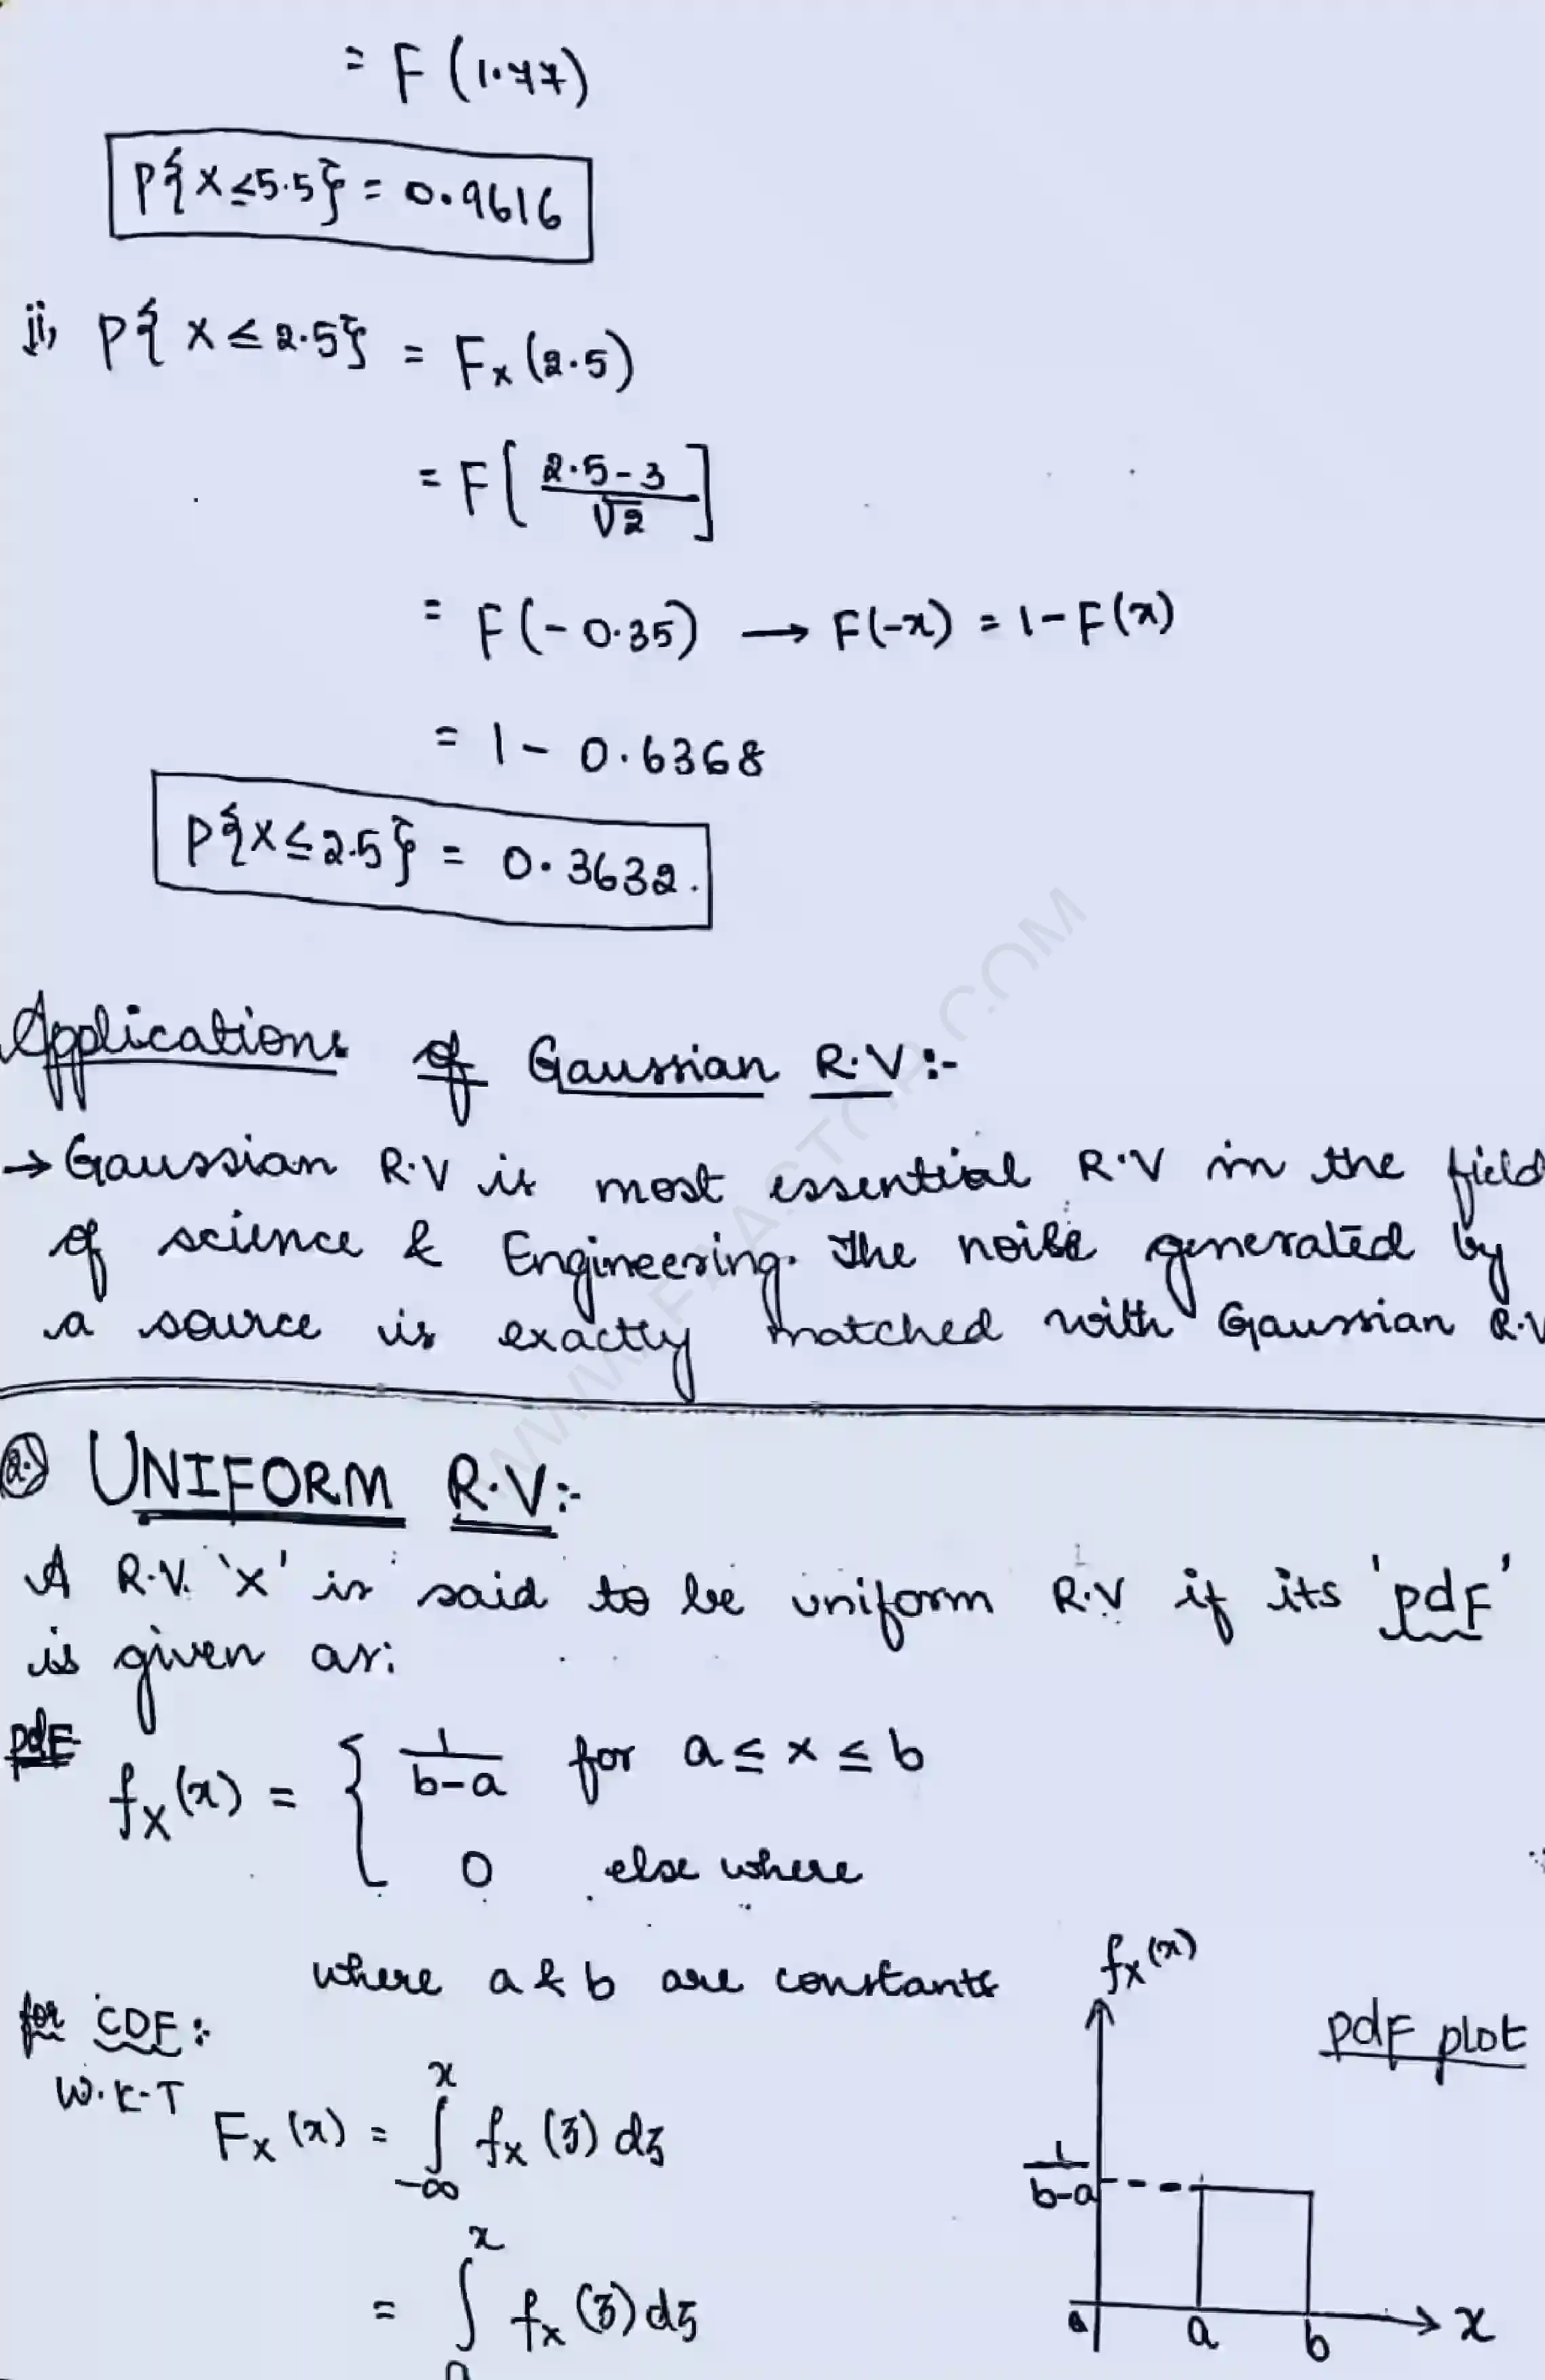 = F (1.77)
P{X ≤ 5.5} = 0.9616
ii, P{ X ≤ 2.5} = Fx (2.5)
= F [ (2.5 - 3) / √2 ]
= F(- 0.35) → F(-x) = 1 - F(x)
= 1 - 0.6368
P{X ≤ 2.5} = 0.3632.
Applications of Gaussian R.V :-
→ Gaussian R.V is most essential R.V in the field
of science & Engineering. The noise generated by
a source is exactly matched with Gaussian R.V
2.) UNIFORM R.V:-
A R.V. 'X' is said to be uniform R.V if its 'pdF'
is given as:
pdF
fX(x) = { 1/(b-a) for a ≤ x ≤ b
0 else where
where a & b are constants
for CDF :-
W.K.T FX (x) = ∫ -∞ x fx (ʒ) dʒ
= ∫ a x fx (ʒ) dʒ
fX(x)
pdF plot
1/(b-a)
a b x
WWW.FAASTOP.COM